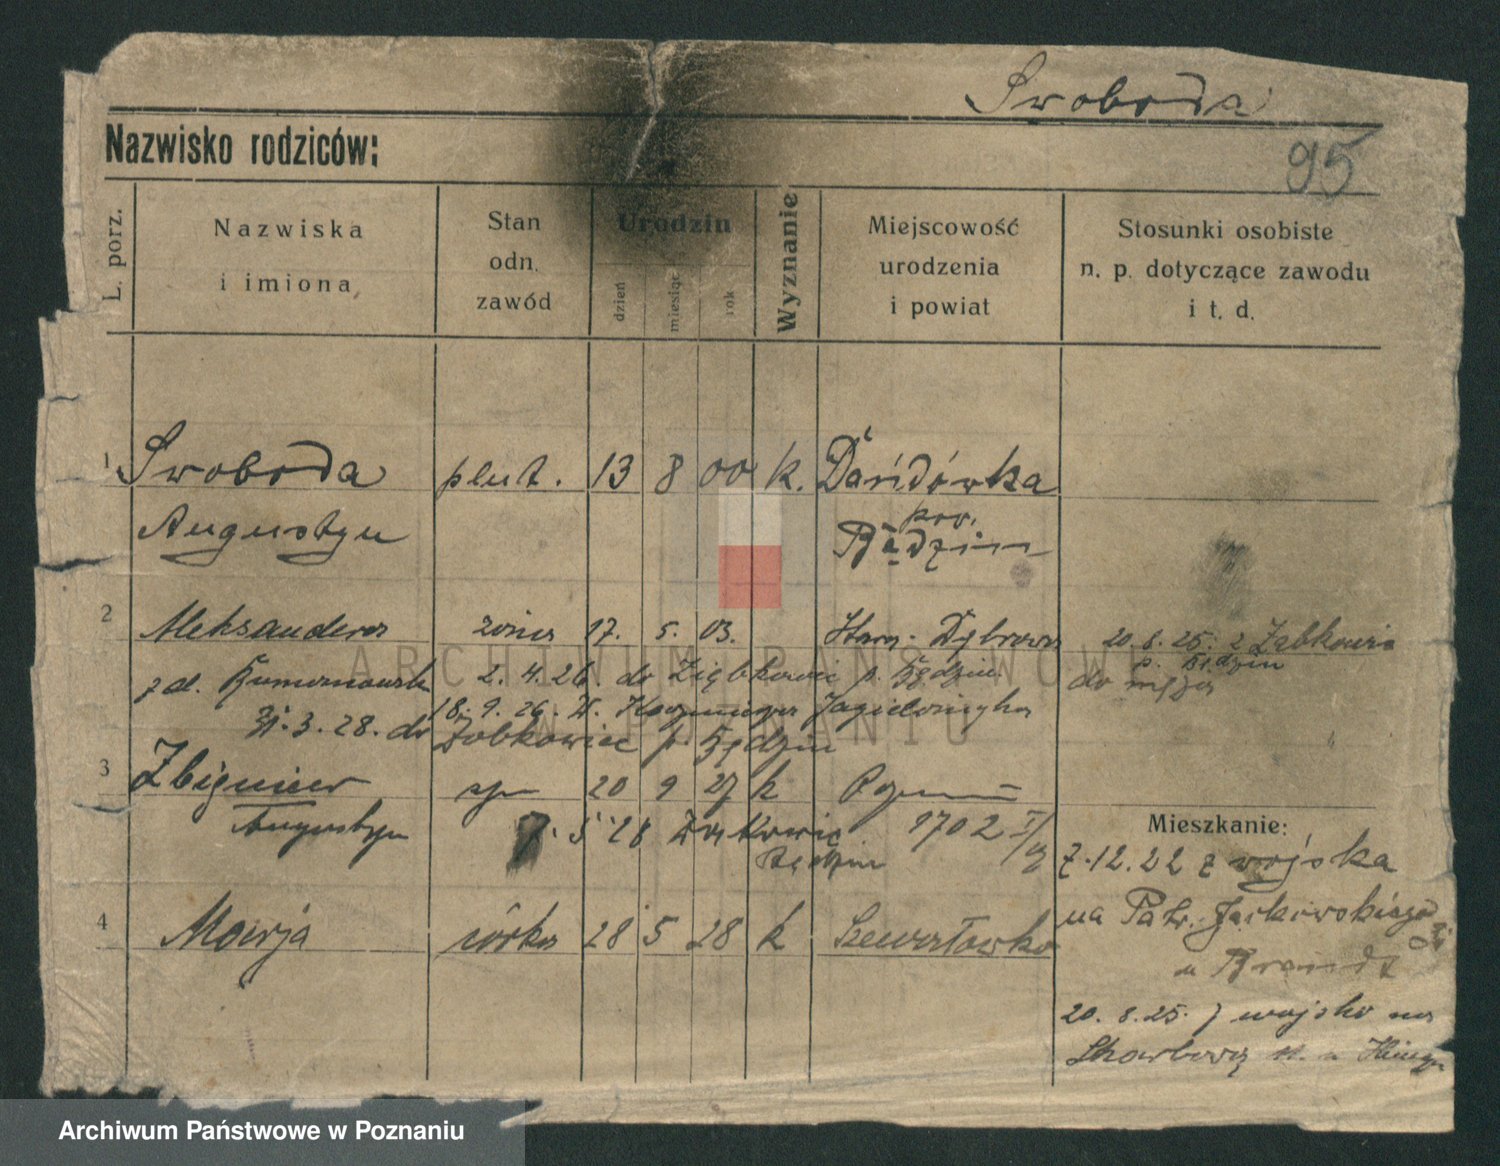 Swoboda
Nazwisko rodziców:
95
L. porz.
Nazwiska
i imiona
Stan
odn.
zawód
Urodzin
dzień
miesiąc
rok
Wyznanie
Miejscowość
urodzenia
i powiat
Stosunki osobiste
n. p. dotyczące zawodu
i t. d.
1 Swoboda plut. 13 8 00 k. Dańdówka
Augustyn pow.
Będzin
2 Aleksandra żona 17. 5. 03. Stara-Dąbrowa 20. 8. 25. z Ząbkowic
p. Będzin
zd. 2. 4. 26. do Ząbkowic p. Będzin do męża
18. 9. 26. Jagielońska
31. 3. 28. do Ząbkowic p. Będzin
3 Zbigniew syn 20 9 27 k Poznań
Augustyn 7. 5 28 Ząbkowic 1702
Będzin
Mieszkanie:
7. 12. 22 z wojska
na Patr. Jackowskiego
u Brandt
4 Marja córka 28 5 28 k
20. 8. 25. z wojska na
Skarbową
ARCHIWUM PAŃSTWOWE
W POZNANIU
Archiwum Państwowe w Poznaniu